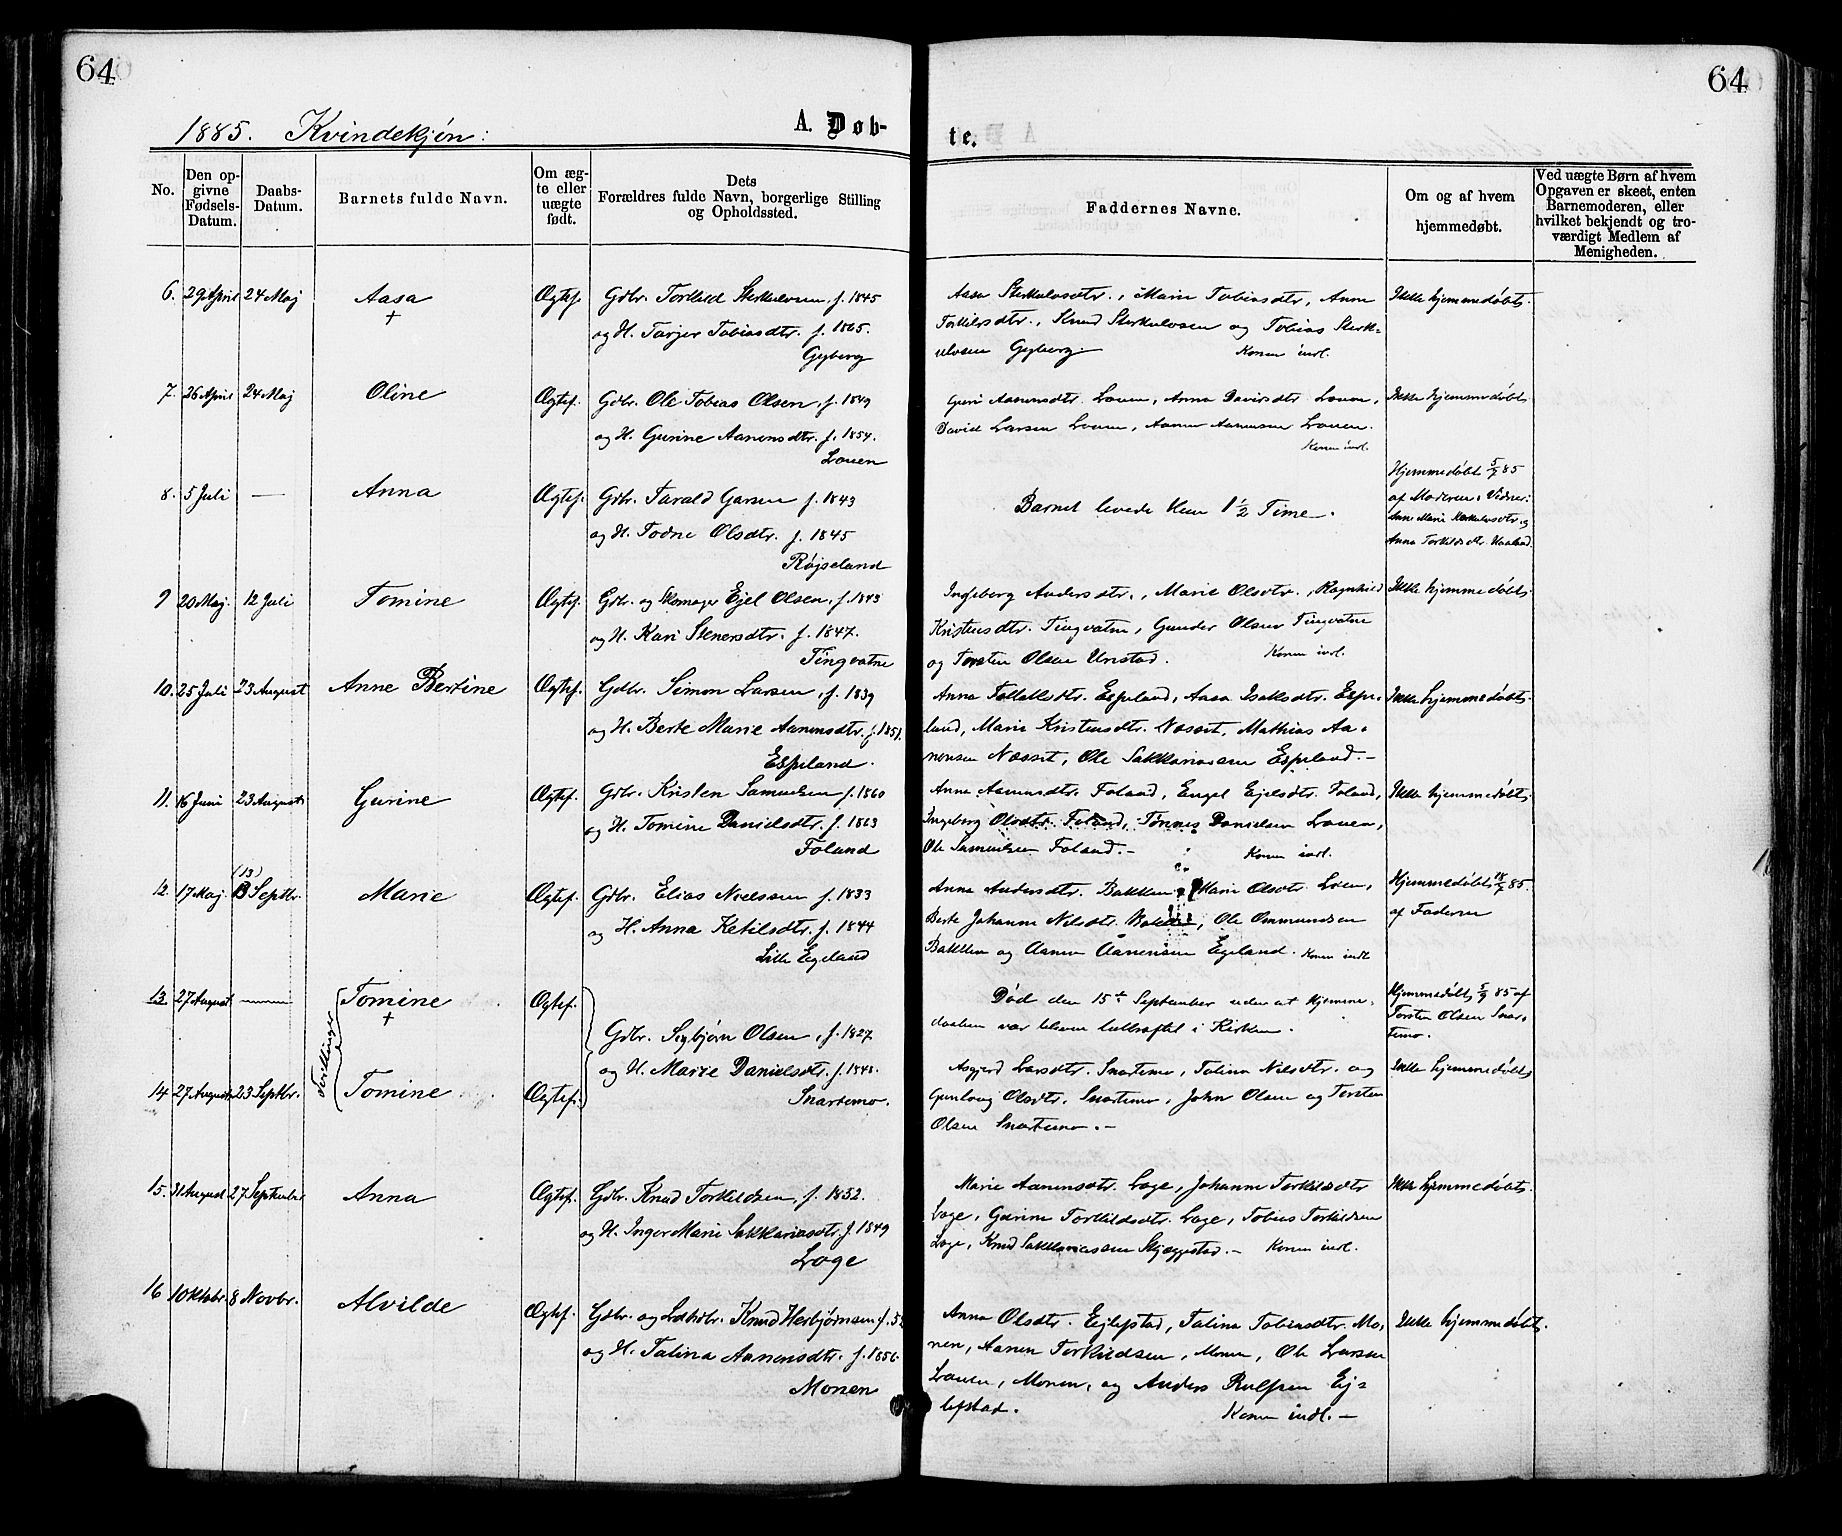 64
64
1885. Kvindekjøn:
A. Døb-
te.
No.
Den op-
givne
Fødsels-
Datum.
Daabs-
Datum.
Barnets fulde Navn.
Om æg-
te eller
uægte
født.
Dets
Forældres fulde Navn, borgerlige Stilling
og Opholdssted.
Faddernes Navne.
Om og af hvem
hjemmedøbt.
Ved uægte Børn af hvem
Opgaven er skeet, enten
Barnemoderen, eller
hvilket bekjendt og tro-
værdigt Medlem af
Menigheden.
6. 29 April 24 Maj Aasa Ægtef. Gdbr. Torkild Sterkulvsen, f. 1845
+
og H. Tarjer Tobiasdtr. f. 1865.
Gyberg
Aasa Sterkulvsdtr., Marie Tobiasdtr, Anne
Torkildsdtr., Knud Sterkulvsen og Tobias Sterk-
ulvsen Gyberg. Konen indl.
Ikke hjemmedøbt.
7. 26 April 24 Maj Oline Ægtef. Gdbr. Ole Tobias Olsen, f. 1849
og H. Gurine Aanensdtr. f. 1854.
Louen
Guri Aanensdtr. Louen, Anna Davidsdtr Louen,
David Larsen Louen, Aanen Aanensen Louen.
Konen indl.
Ikke hjemmedøbt
8. 5 Juli — Anna Ægtef. Gdbr. Tarald Garsen f. 1843
og H. Todne Olsdtr. f. 1845
Røjseland
Barnet levede kun 1 1/2 Time.
Hjemmedøbt 5/7 85
af Moderen. Vidner:
Anne Marie
Anna Torkildsdtr.
9 20 Maj. 12 Juli Tomine Ægtef. Gdbr. og Skomager Ejel Olsen, f. 1843
og H. Kari Stenersdtr. f. 1847.
Tingvatne
Ingeborg Andersdtr., Marie Olsdtr., Ragnhild
Kristensdtr. Tingvatne, Gunder Olsen Tingvatne
og Torsten Olsen Unstad. Konen indl.
Ikke hjemmedøbt.
10. 25 Juli 23 August Anne Bertine Ægtef. Gdbr. Simon Larsen, f. 1839
og H. Berte Marie Aanensdtr. f. 1851.
Espeland.
Anna Tollaksdtr. Espeland, Aasa Isaksdtr. Espe-
land, Marie Kristensdtr. Næset, Mathias Aa-
nensen Næset, Ole Sakkariasen Espeland. —
Ikke hjemmedøbt.
11. 16 Juni 23 August Gurine Ægtef. Gdbr. Kristen Samuelsen f. 1860
og H. Tomine Danielsdtr. f. 1863
Foland
Anne Aanensdtr. Foland, Engel Ejelsdtr. Foland,
Ingeborg Olsdtr. Foland, Tønnes Danielsen Louen,
Ole Samuelsen Foland. — Konen indl.
Ikke hjemmedøbt.
(13)
12. 17 Maj. 13 Septbr. Marie Ægtef. Gdbr. Elias Nielssen f. 1833
og H. Anna Ketilsdtr. f. 1844
Lille Egeland
Anna Andersdtr. Bakken, Marie Olsdtr. Loen,
Berte Johanne Nilsdtr. Bakken, Ole Ommundsen
Bakken og Aanen Aanensen Egeland. Konen indl
Hjemmedøbt 18/5 85.
af Faderen
13. 27 August — Tomine Ægtef.
+
Tvillinger
Gdbr. Sigbjørn Olsen, f. 1827
og H. Marie Danielsdtr. f. 1848.
Snartemo.
Død den 15de September uden at Hjemme-
daaben var bleven bekræftet i Kirken.
Hjemmedøbt 5/9 85 af
Torsten Olsen Snar-
temo.
14 27 August 23 Septbr. Tomine Ægtef.
Asgjerd Larsdtr. Snartemo, Talina Nilsdtr. og
Gunlaug Olsdtr. Snartemo, John Olsen og Torsten
Olsen Snartemo. —
Ikke hjemmedøbt
15. 31 August 27 September Anna Ægtef. Gdbr. Knud Torkildsen, f. 1852.
og H. Inger Marie Sakkariasdtr. f 1849
Loge
Marie Aanensdtr. Loge, Johanne Torkildsdtr
Loge, Gurine Torkildsdtr. Loge, Tobias Torkildsen
Loge, Knud Sakkariassen Skjeggestad. — Konen indl.
Ikke hjemmedøbt.
16 1 Oktobr. 8 Novbr. Alvilde Ægtef. Gdbr. og Knud Herbjørnsen f. 5
og H. Talina Aanensdtr. f. 1856.
Monen
Anna Olsdtr. Ejlefstad, Talina Tobiasdtr. Mo-
nen, Aanen Torkildsen, Monen, Ole Larsen
Louen, Monen, og Anders Rolfsen Ej-
lefstad. Konen indl. —
Ikke hjemmedøbt.